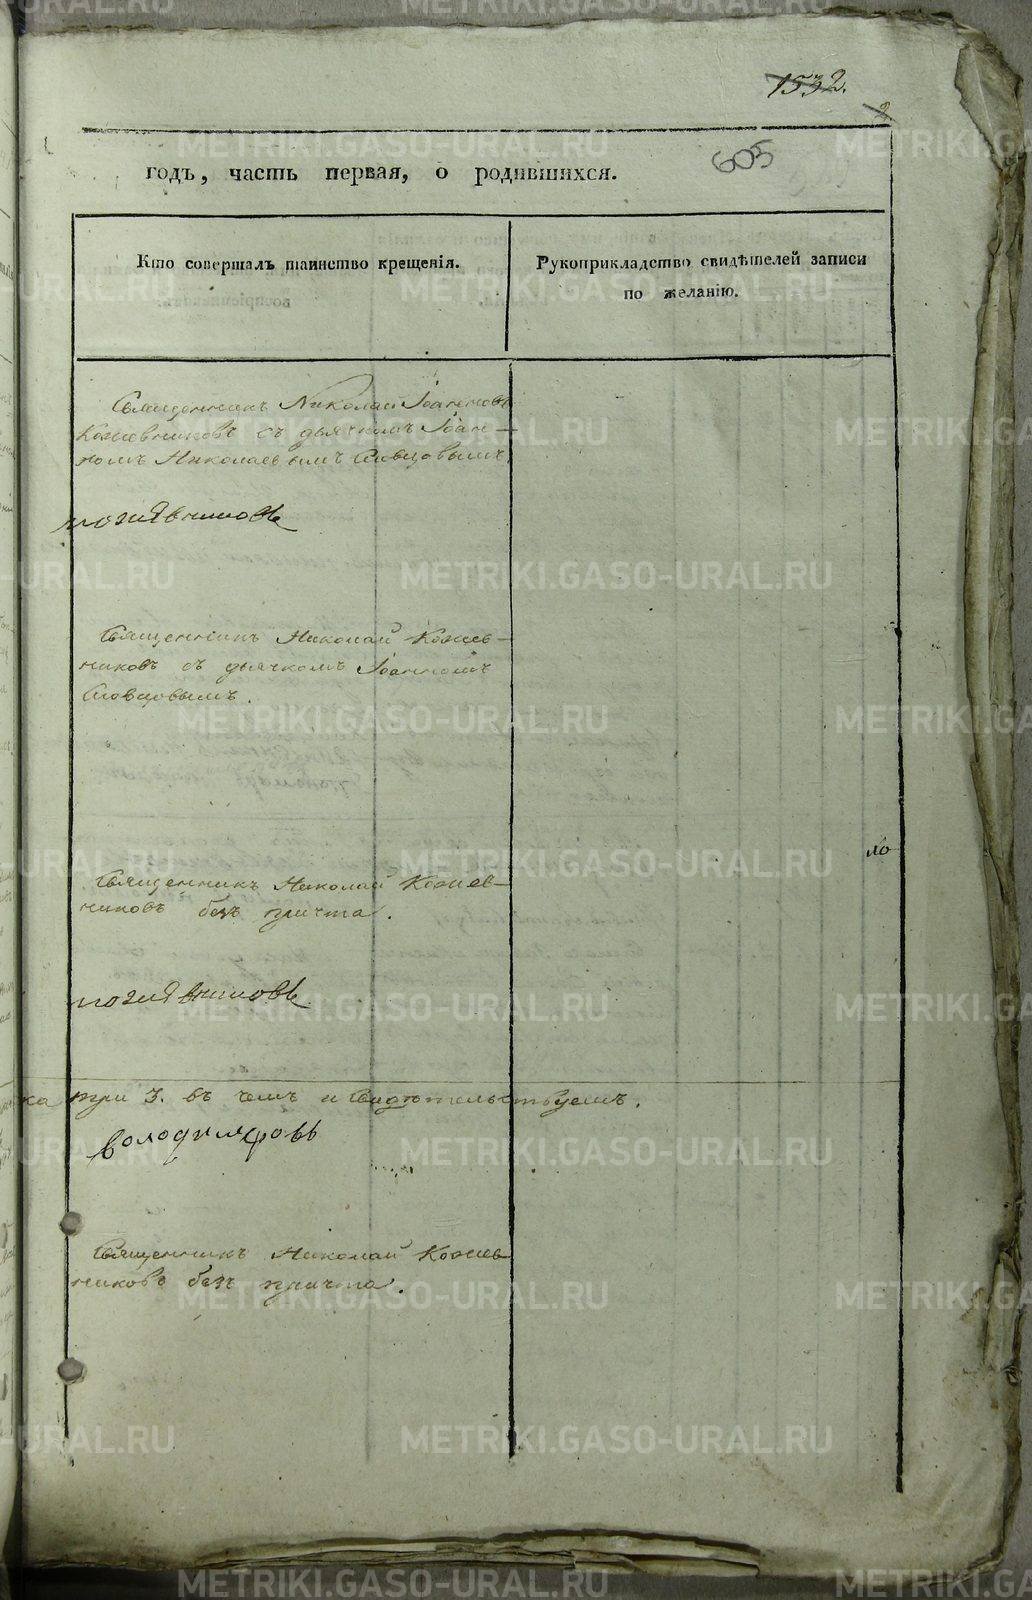 1532.
2
605
годъ, часть первая, о родившихся.
Кто совершалъ таинство крещенія.
Рукоприкладство свидѣтелей записи
по желанію.
Священникъ Николай Іоанновъ
Кожевниковъ съ дьячкомъ Іоан-
номъ Николаевымъ Словцовымъ.
Священникъ Николай Кожев-
никовъ съ дьячкомъ Іоанномъ
Словцовымъ.
Священникъ Николай Кожев-
никовъ безъ причта.
ка при 3. въ чемъ и свидѣтельствуемъ.
Священникъ Николай Кожев-
никовъ безъ причта.
METRIKI.GASO-URAL.RU